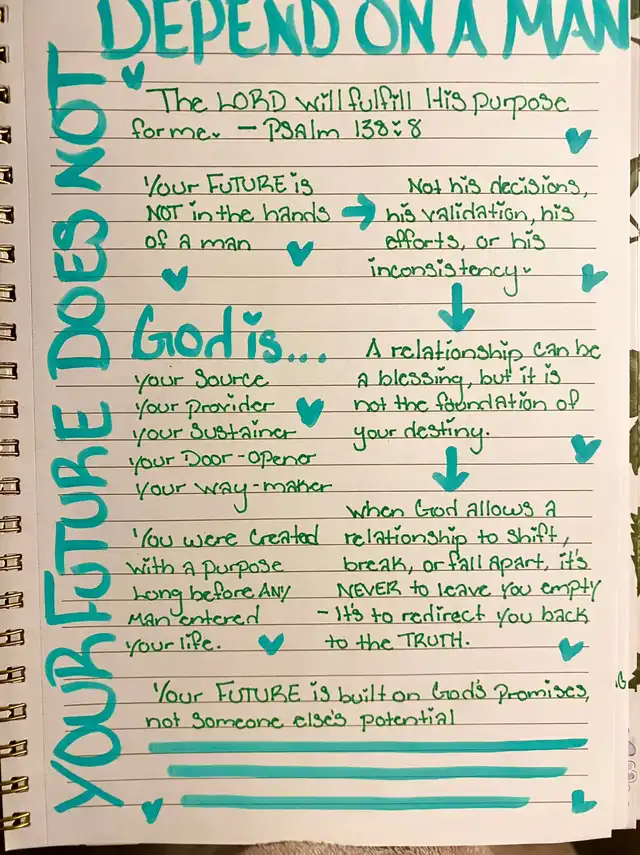 YOUR FUTURE DOES NOT
DEPEND ON A MAN
The LORD will fulfill His purpose
for me. - Psalm 138:8
Your FUTURE is
NOT in the hands
of a man
Not his decisions,
his validation, his
efforts, or his
inconsistency.
God is...
your Source
your Provider
your Sustainer
your Door-Opener
your way-maker
A relationship can be
a blessing, but it is
not the foundation of
your destiny.
You were created
with a purpose
Long before ANY
Man entered
your life.
when God allows a
relationship to shift,
break, or fall apart, it's
NEVER to leave you empty
- It's to redirect you back
to the TRUTH.
Your FUTURE is built on God's Promises,
not someone else's potential